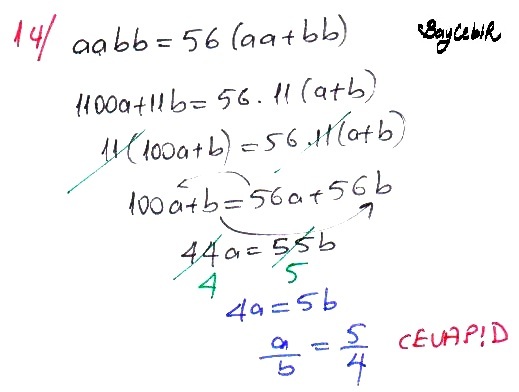 14/ aabb = 56 (aa+bb)
BayCebiR
1100a+11b = 56 . 11 (a+b)
11(100a+b) = 56 . 11(a+b)
100a+b = 56a+56b
44a = 55b
4 5
4a = 5b
a/b = 5/4 CEVAP!D